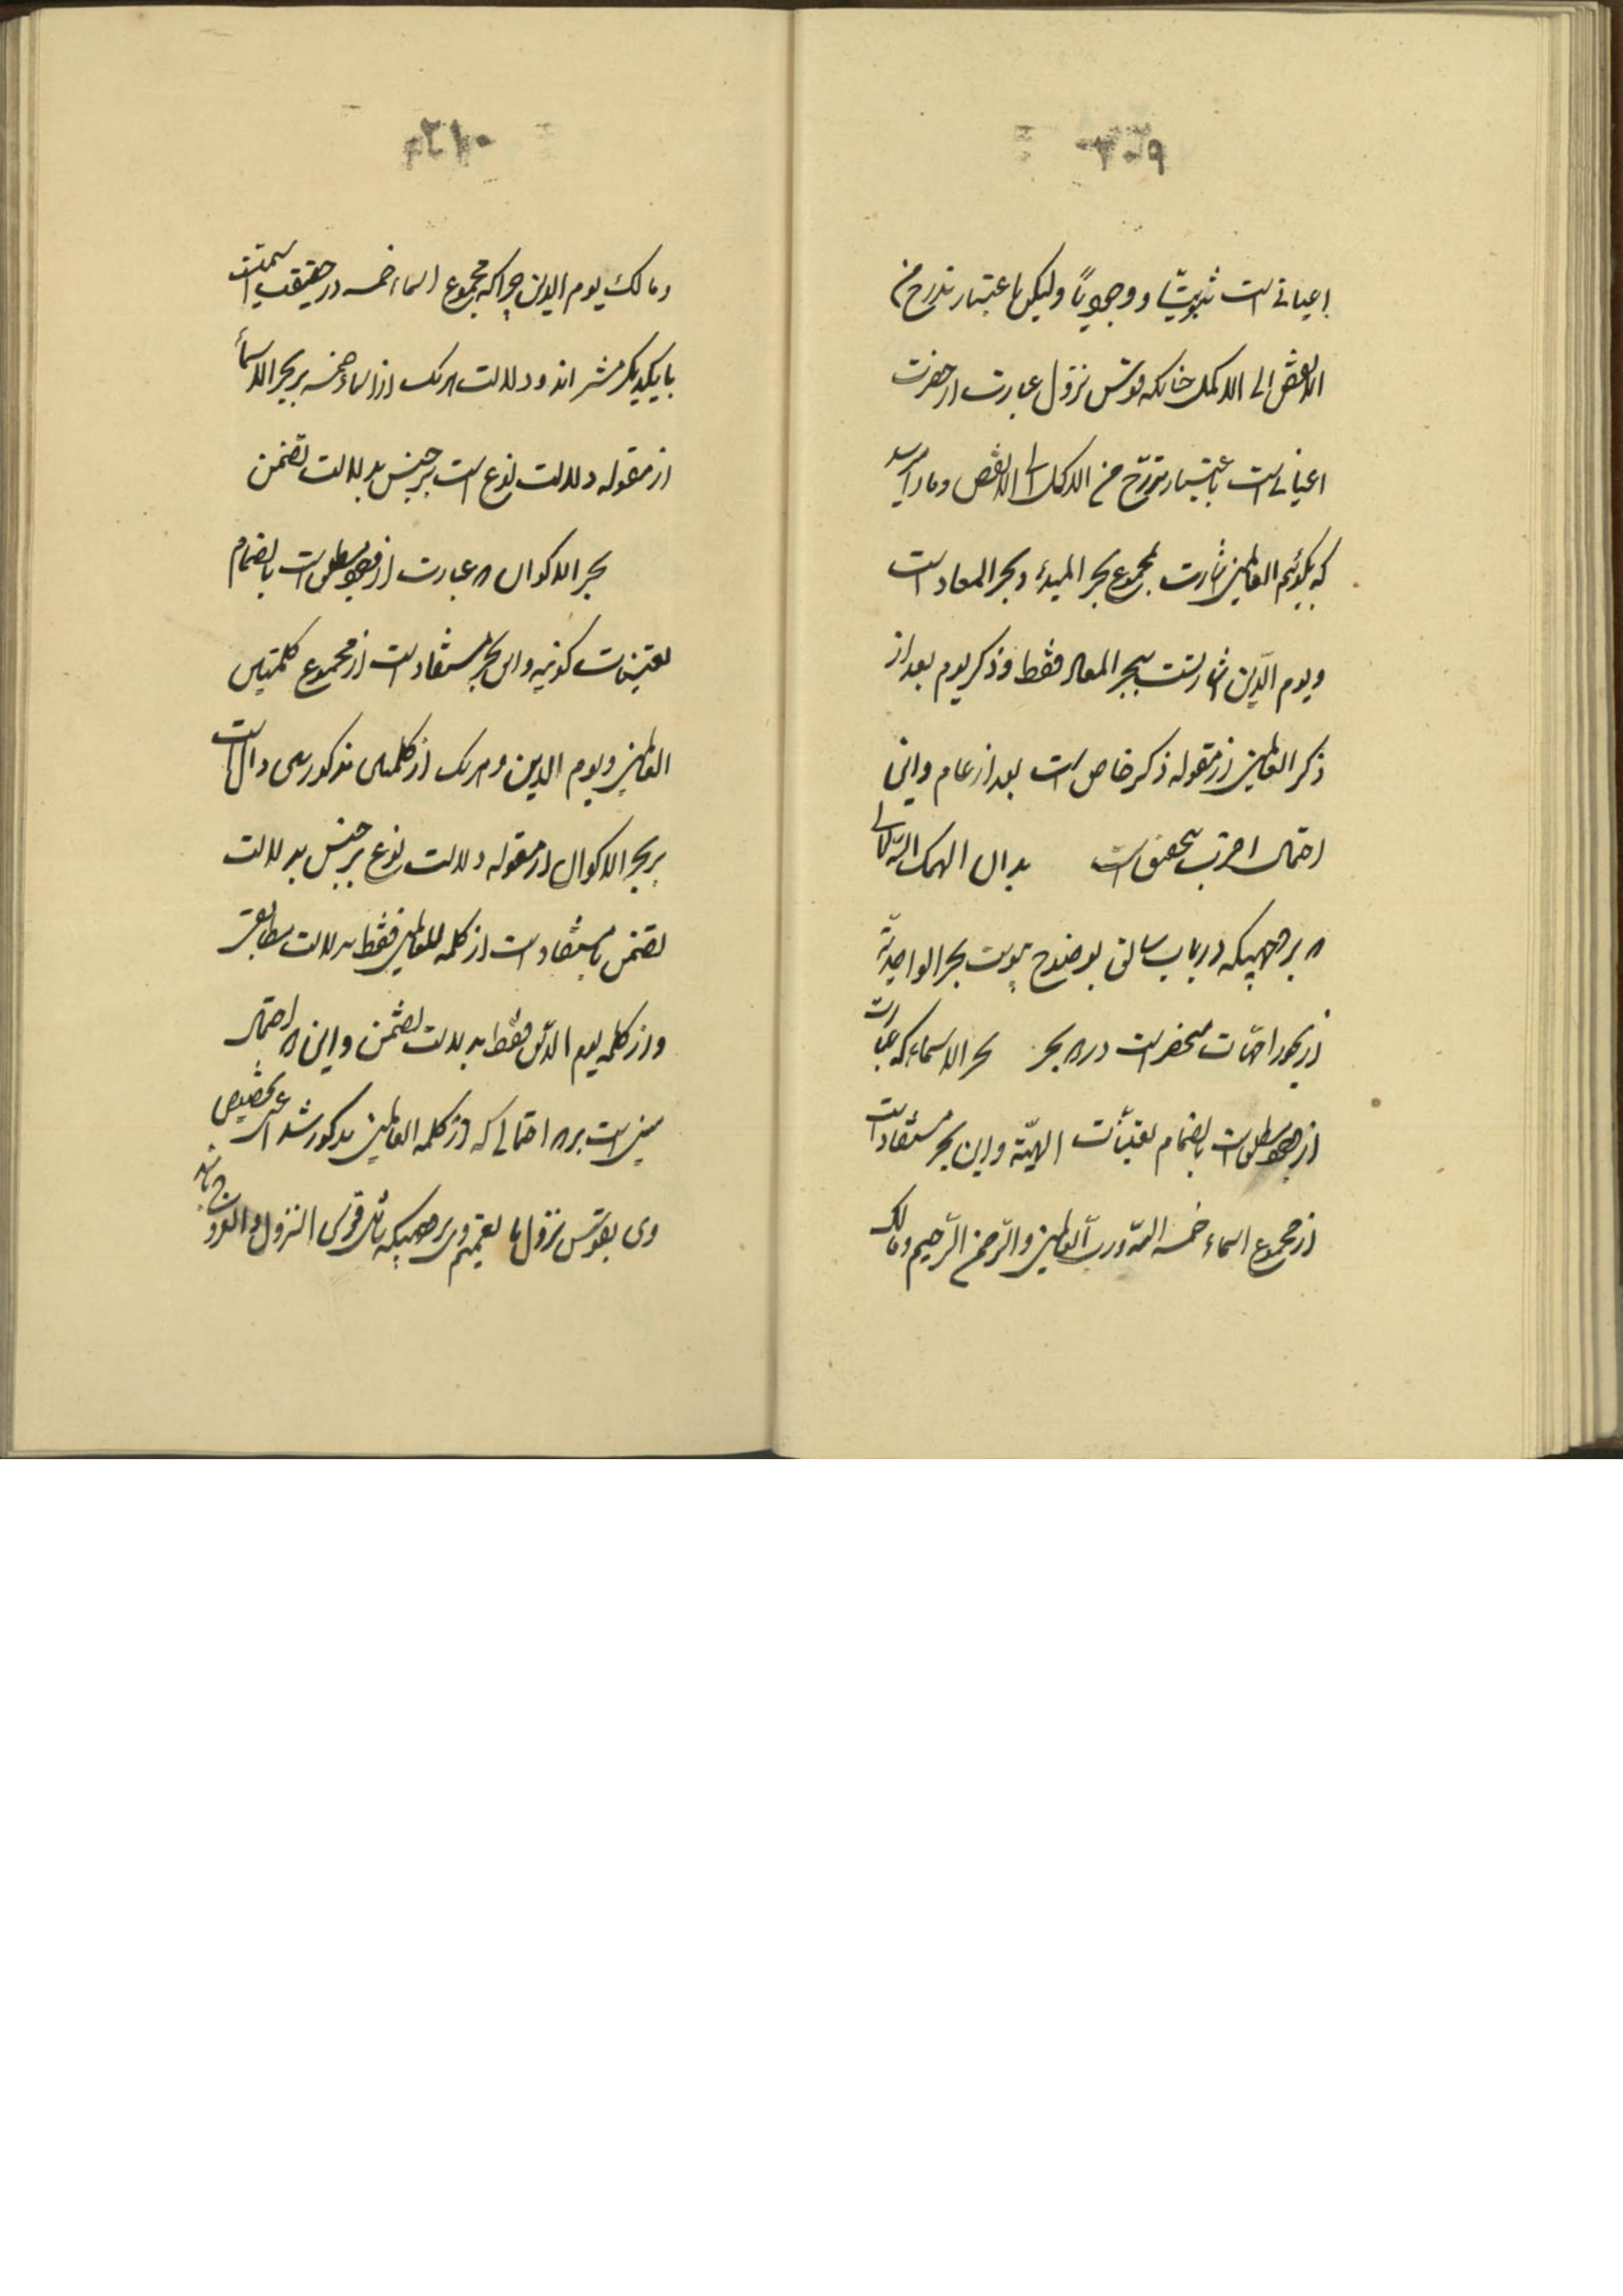 ۲۰۹
اعیانی است ثبوتیّا و وجودیاً ولیکن باعتبار تدرج من
الانقص الی الاکمل چنانکه قوس نزول عبارت از حضرت
اعیانی است باعتبار تدرّج من الاکمل الی الانقص و ما را میرسد
که بگوئیم العالمین اشارت بمجموع بحر المبدء و بحر المعاد است
و یوم الدّین اشارتست ببحر المعاد فقط و ذکر یوم بعد از
ذکر العالمین از مقوله ذکر خاص است بعد از عام و این
احتمال اقرب بتحقیق است بدان الهمک اللّه تعالی
که بر وجهیکه در باب سابق بوضوح پیوست بحر الواحدیّة
از بحور امّهات منحصر است در دو بحر بحر الاسماء که عبارت
از وجود مطلق است بانضمام تعینات الهیّة و این بحر مستفاد است
از مجموع اسماء خمسه اللّه و ربّ العالمین و الرّحمن الرّحیم و مالک
۲۱۰
و مالک یوم الدین چرا که مجموع اسماء خمسه در حقیقت اسمیّت
با یکدیگر مشترک اند و دلالت هر یک از اسماء خمسه بر بحر الاسماء
از مقوله دلالت نوع است بر جنس بدلالت تضمن
بحر الاکوان که عبارت از وجود مطلق است بانضمام
تعینات کونیه و این بحر مستفاد است از مجموع کلمتین
العالمین و یوم الدین و هر یک از کلمتین مذکورتین دال است
بر بحر الاکوان از مقوله دلالت نوع بر جنس بدلالت
تضمن یا مستفاد است از کلمه العالمین فقط بدلالت مطابقه
و از کلمه یوم الدّین فقط بدلالت تضمن و این احتمال
مبنی است بر احتمالی که از کلمه العالمین مذکور شد اعنی تخصیص
وی بقوس نزول یا تعمیم وی بر وجهیکه شامل قوس النزول و العروج باشد